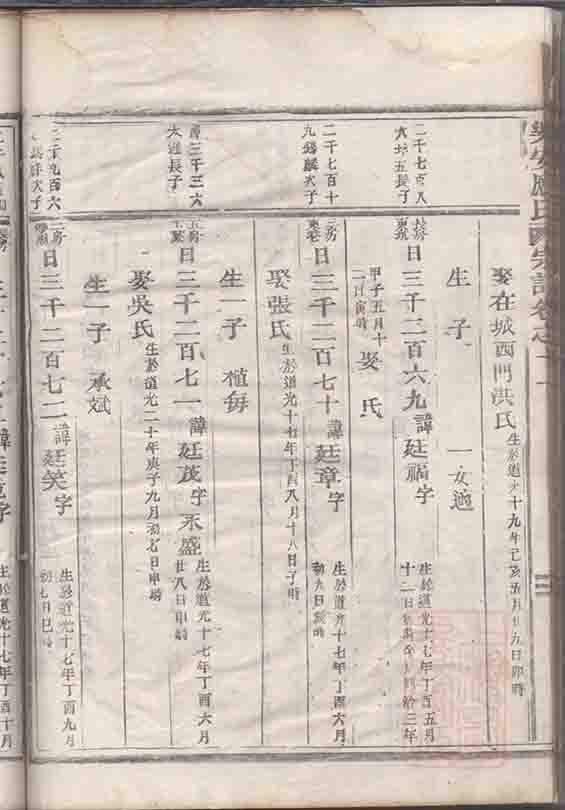 應氏宗譜卷之
娶在城西門洪氏 生於道光十九年己亥五月廿五日卯時
生子 一女適
二千七百八 長子
日三千二百六九 諱廷福字 生於道光十七年丁酉五月十二日 三年
甲子五月十 日寅時 娶 氏
二千七百十九 次子
日三千二百七十 諱廷章字 生於道光十七年丁酉六月初九日 時
娶張氏 生於道光十七年丁酉八月十八日子時
生一子 植每
三千三六 長子
日三千二百七一 諱廷茂字永盛 生於道光十七年丁酉六月廿八日申時
娶吳氏 生於道光二十年庚子九月初七日申時
生一子 承斌
二千九百六 次子
二房 日三千二百七二 諱廷笑字 生於道光十七年丁酉九月初七日巳時
生於道光十七年丁酉十月